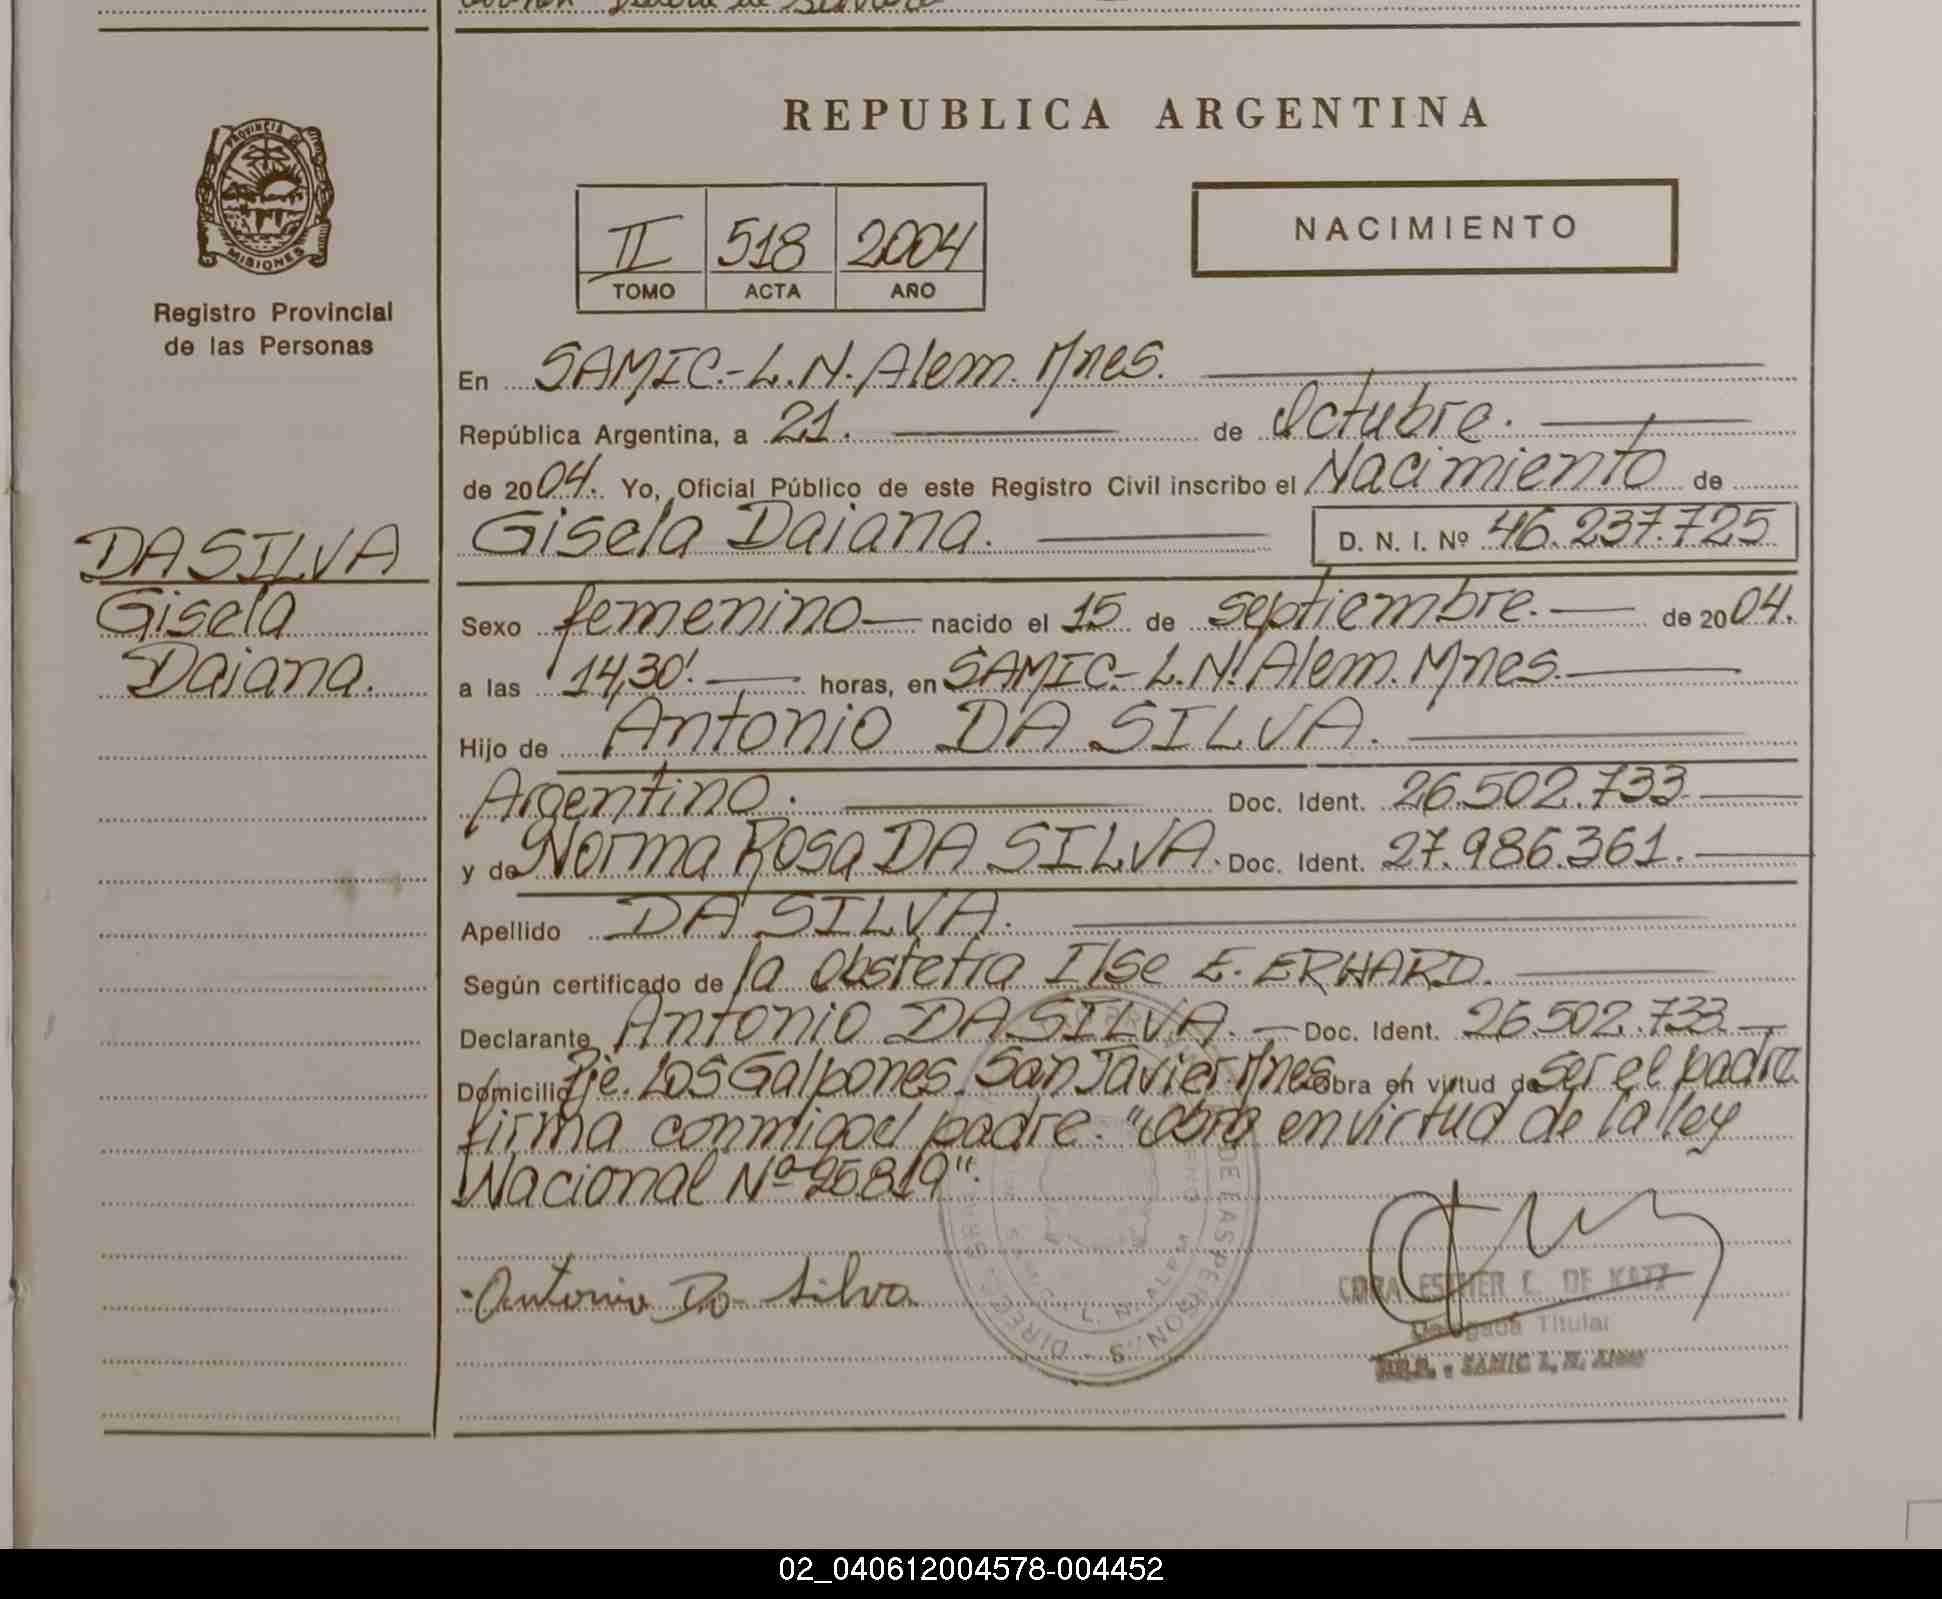 REPUBLICA ARGENTINA
PROVINCIA DE
MISIONES
Registro Provincial
de las Personas
II 518 2004
TOMO ACTA AÑO
NACIMIENTO
En SAMIC.-L.N.Alem.Mnes.
República Argentina, a 21. de Octubre.
de 2004. Yo, Oficial Público de este Registro Civil inscribo el Nacimiento de
Gisela Daiana. D. N. I. Nº 46.237.725
DA SILVA
Gisela
Daiana.
Sexo femenino nacido el 15 de septiembre. de 2004.
a las 14,30'. horas, en SAMIC.-L.N.Alem.Mnes.
Hijo de Antonio DA SILVA.
Argentino. Doc. Ident. 26.502.733
y de Norma Rosa DA SILVA. Doc. Ident. 27.986.361.
Apellido DA SILVA.
Según certificado de la Obstetra Ilse E. ERHARD.
Declarante Antonio DA SILVA. Doc. Ident. 26.502.733
Domicilio Pje. Los Galpones. San Javier.Mnes obra en virtud de ser el padre
firma conmigo el padre. "Obra en virtud de la ley
Nacional Nº 25819".
Antonio Da Silva
ESTHER L. DE KATZ
Delegada Titular
SAMIC L. N.
DE LAS PERSONAS
L. N. ALEM
02_040612004578-004452